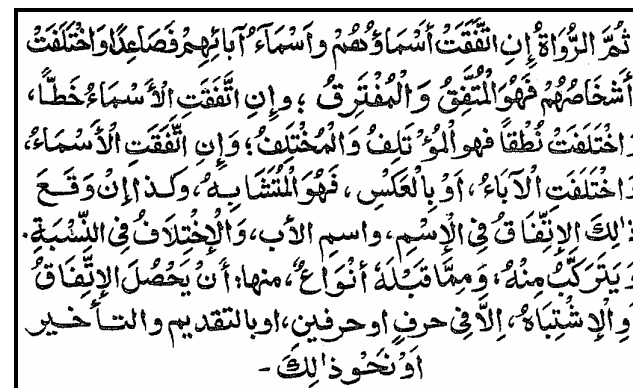 ثُمَّ الرُّوَاةُ إِنِ اتَّفَقَتْ أَسْمَاؤُهُمْ وَأَسْمَآءُ آبَائِهِمْ فَصَاعِدًا وَاخْتَلَفَتْ
أَشْخَاصُهُمْ فَهُوَ الْمُتَّفِقُ وَالْمُفْتَرِقُ ؛ وَإِنِ اتَّفَقَتِ الْأَسْمَاءُ خَطًّا،
وَاخْتَلَفَتْ نُطْقاً فهو الْمُؤْتَلِفُ وَالْمُخْتَلِفُ؛ وَإِنِ اتَّفَقَتِ الْأَسْمَاءُ،
وَاخْتَلَفَتِ الْآبَاءُ، أَوْ بِالْعَكْسِ، فَهُوَ الْمُتَشَابِهُ، وَكَذا إِنْ وَقَعَ
ذٰلِكَ الِاتِّفَاقُ فِي الْإِسْمِ، واسمِ الأب، وَالْإِخْتِلَافُ فِي النِّسْبَةِ.
وَيَتَرَكَّبُ مِنْهُ، وَمِمَّا قَبْلَهٗ أَنْوَاعٌ، منها: أَنْ يَحْصُلَ الْإِتِّفَاقُ
وَالْإِشْتِبَاهُ، إِلَّا فِي حرفٍ او حرفين، اوبالتقديم والتأخير
اَوْ نَحْوِ ذٰلِكَ -